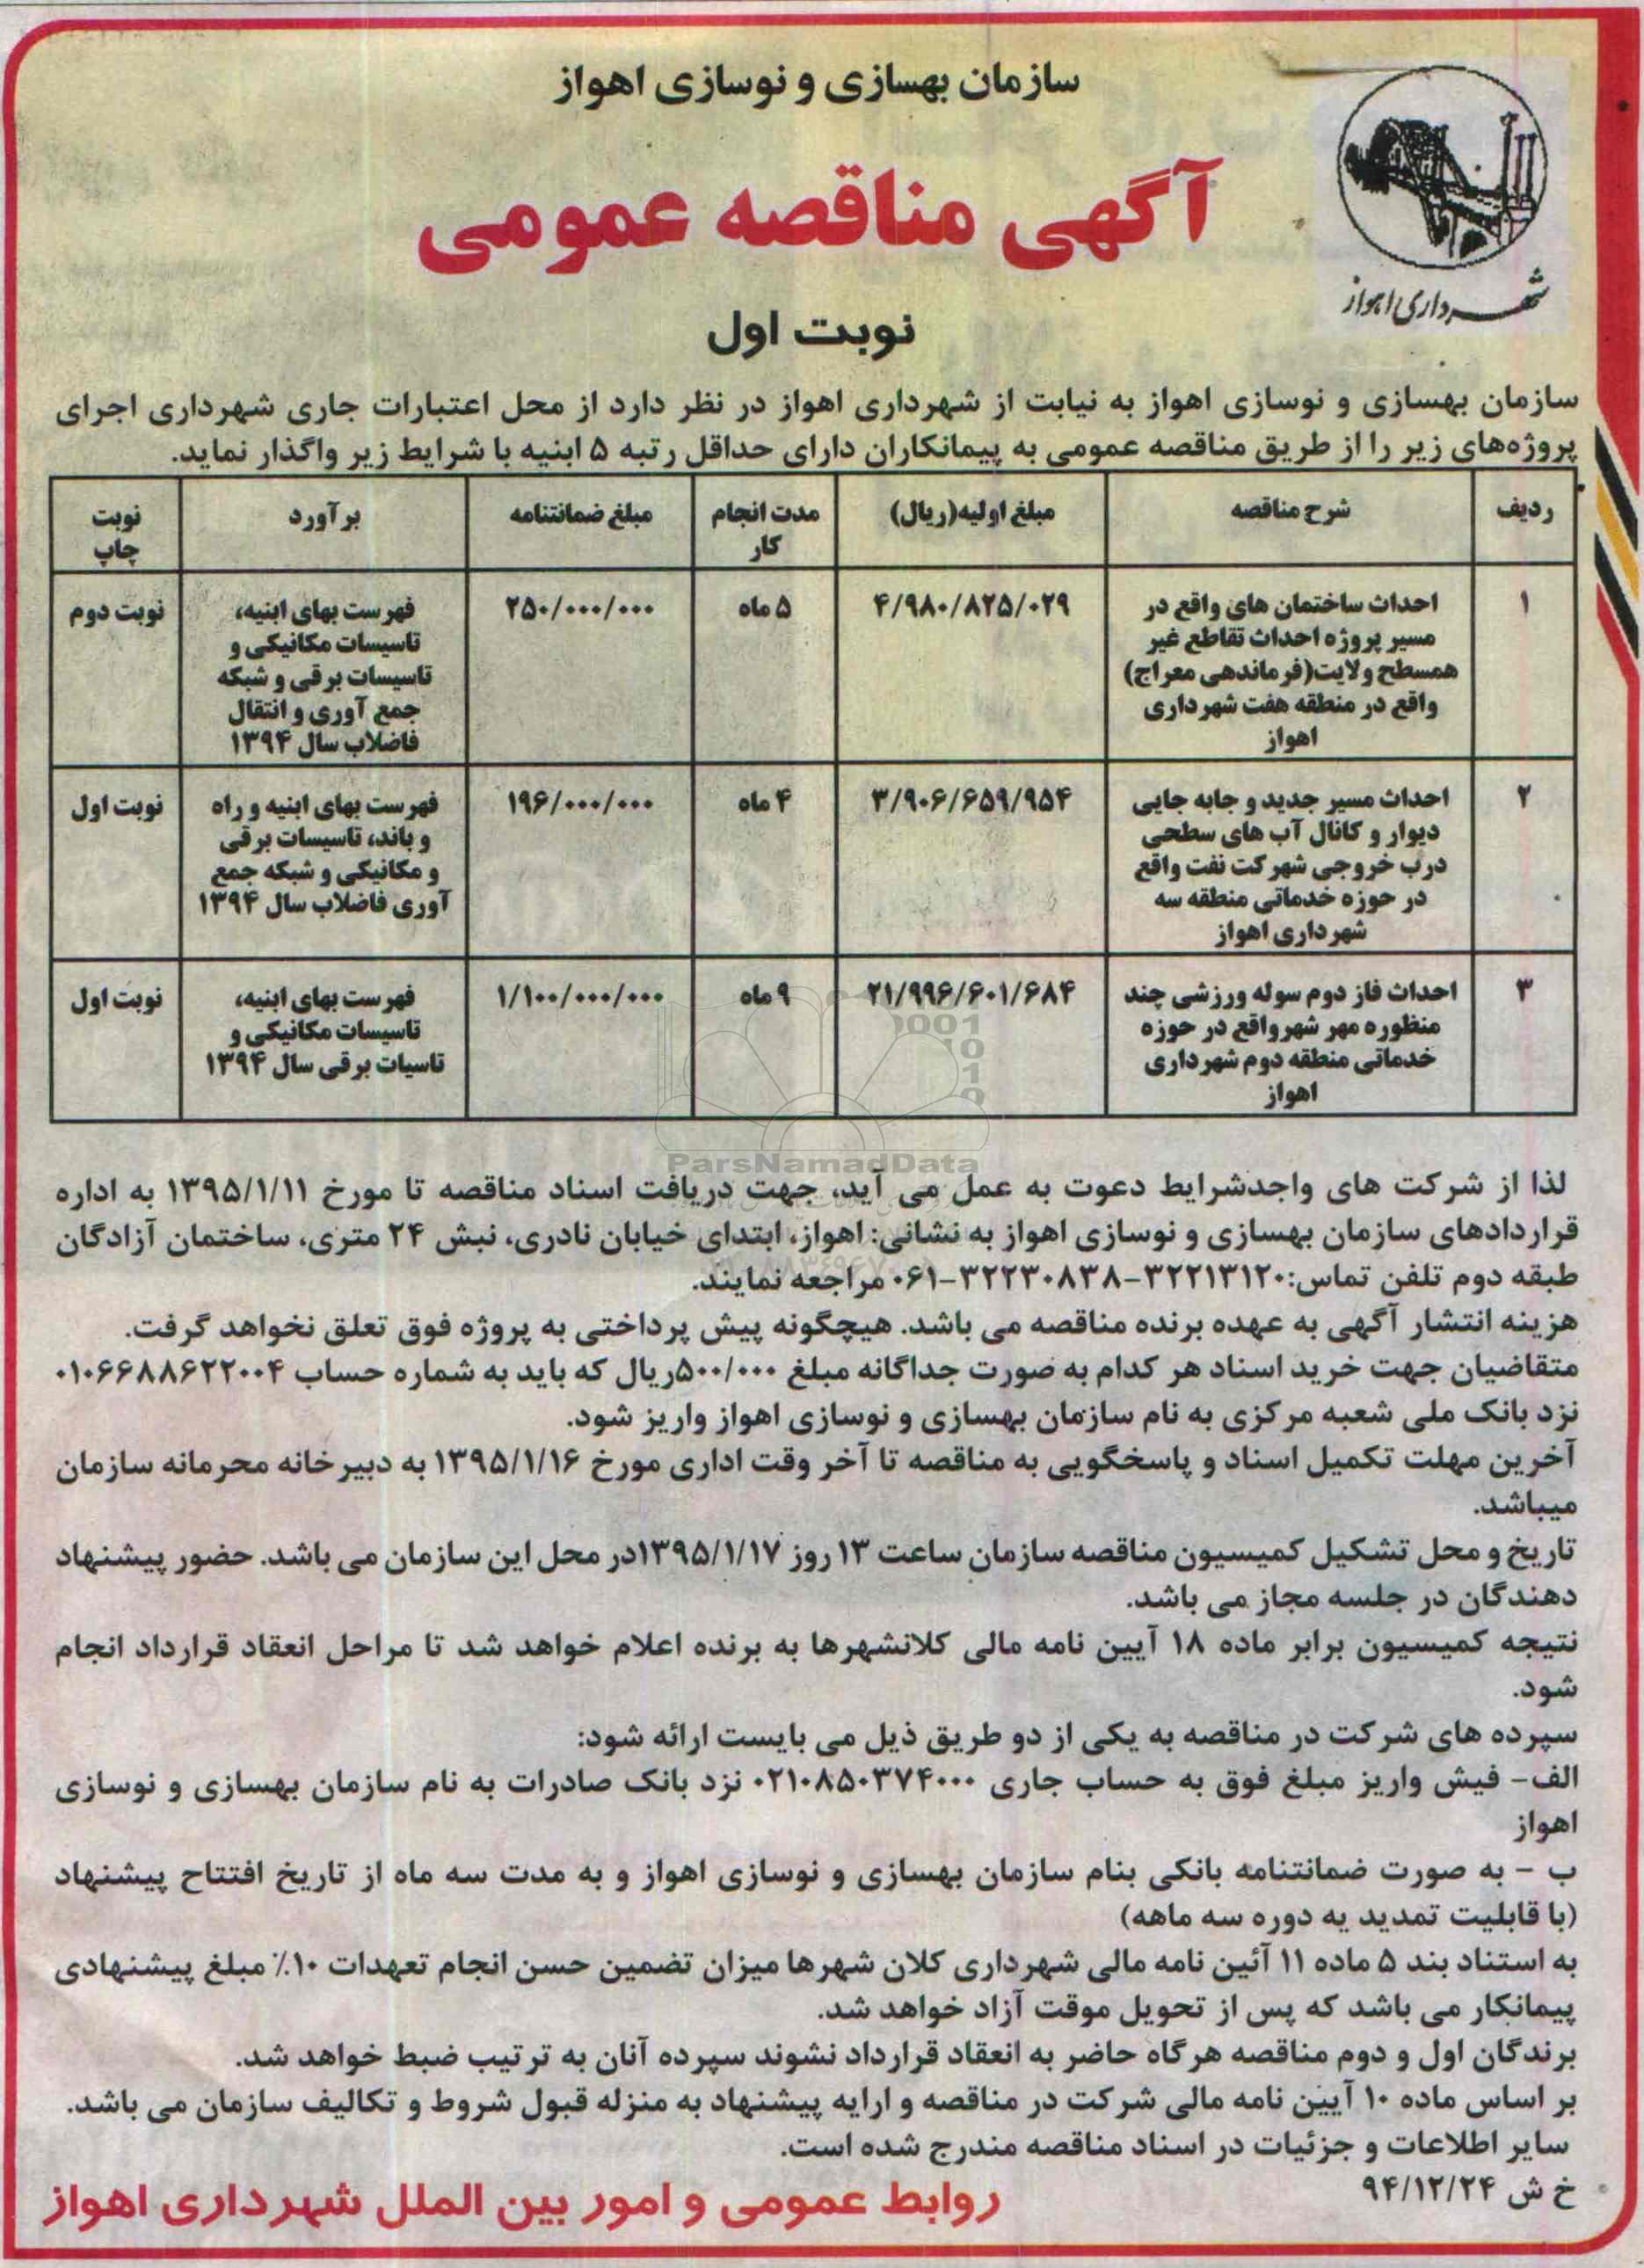 سازمان بهسازی و نوسازی اهواز
آگهی مناقصه عمومی
شهرداری اهواز
نوبت اول
سازمان بهسازی و نوسازی اهواز به نیابت از شهرداری اهواز در نظر دارد از محل اعتبارات جاری شهرداری اجرای
پروژه‌های زیر را از طریق مناقصه عمومی به پیمانکاران دارای حداقل رتبه ۵ ابنیه با شرایط زیر واگذار نماید.
ردیف شرح مناقصه مبلغ اولیه(ریال) مدت انجام کار مبلغ ضمانتنامه برآورد نوبت چاپ
۱ احداث ساختمان های واقع در ۴/۹۸۰/۸۲۵/۰۲۹ ۵ ماه ۲۵۰/۰۰۰/۰۰۰ فهرست بهای ابنیه، نوبت دوم
مسیر پروژه احداث تقاطع غیر تاسیسات مکانیکی و
همسطح ولایت(فرماندهی معراج) تاسیسات برقی و شبکه
واقع در منطقه هفت شهرداری جمع آوری و انتقال
اهواز فاضلاب سال ۱۳۹۴
۲ احداث مسیر جدید و جابه جایی ۳/۹۰۶/۶۵۹/۹۵۴ ۴ ماه ۱۹۶/۰۰۰/۰۰۰ فهرست بهای ابنیه و راه نوبت اول
دیوار و کانال آب های سطحی و باند، تاسیسات برقی
درب خروجی شهرکت نفت واقع و مکانیکی و شبکه جمع
در حوزه خدماتی منطقه سه آوری فاضلاب سال ۱۳۹۴
شهرداری اهواز
۳ احداث فاز دوم سوله ورزشی چند ۲۱/۹۹۶/۶۰۱/۶۸۴ ۹ ماه ۱/۱۰۰/۰۰۰/۰۰۰ فهرست بهای ابنیه، نوبت اول
منظوره مهر شهرواقع در حوزه تاسیسات مکانیکی و
خدماتی منطقه دوم شهرداری تاسیات برقی سال ۱۳۹۴
اهواز
ParsNamadData
لذا از شرکت های واجدشرایط دعوت به عمل می آید، جهت دریافت اسناد مناقصه تا مورخ ۱۳۹۵/۱/۱۱ به اداره
قراردادهای سازمان بهسازی و نوسازی اهواز به نشانی: اهواز، ابتدای خیابان نادری، نبش ۲۴ متری، ساختمان آزادگان
طبقه دوم تلفن تماس:۳۲۲۱۳۱۲۰-۳۲۲۳۰۸۳۸-۰۶۱ مراجعه نمایند.
هزینه انتشار آگهی به عهده برنده مناقصه می باشد. هیچگونه پیش پرداختی به پروژه فوق تعلق نخواهد گرفت.
متقاضیان جهت خرید اسناد هر کدام به صورت جداگانه مبلغ ۵۰۰/۰۰۰ریال که باید به شماره حساب ۰۱۰۶۶۸۸۶۲۲۰۰۴
نزد بانک ملی شعبه مرکزی به نام سازمان بهسازی و نوسازی اهواز واریز شود.
آخرین مهلت تکمیل اسناد و پاسخگویی به مناقصه تا آخر وقت اداری مورخ ۱۳۹۵/۱/۱۶ به دبیرخانه محرمانه سازمان
میباشد.
تاریخ و محل تشکیل کمیسیون مناقصه سازمان ساعت ۱۳ روز ۱۳۹۵/۱/۱۷در محل این سازمان می باشد. حضور پیشنهاد
دهندگان در جلسه مجاز می باشد.
نتیجه کمیسیون برابر ماده ۱۸ آیین نامه مالی کلانشهرها به برنده اعلام خواهد شد تا مراحل انعقاد قرارداد انجام
شود.
سپرده های شرکت در مناقصه به یکی از دو طریق ذیل می بایست ارائه شود:
الف- فیش واریز مبلغ فوق به حساب جاری ۰۲۱۰۸۵۰۳۷۴۰۰۰ نزد بانک صادرات به نام سازمان بهسازی و نوسازی
اهواز
ب - به صورت ضمانتنامه بانکی بنام سازمان بهسازی و نوسازی اهواز و به مدت سه ماه از تاریخ افتتاح پیشنهاد
(با قابلیت تمدید یه دوره سه ماهه)
به استناد بند ۵ ماده ۱۱ آئین نامه مالی شهرداری کلان شهرها میزان تضمین حسن انجام تعهدات ۱۰٪ مبلغ پیشنهادی
پیمانکار می باشد که پس از تحویل موقت آزاد خواهد شد.
برندگان اول و دوم مناقصه هرگاه حاضر به انعقاد قرارداد نشوند سپرده آنان به ترتیب ضبط خواهد شد.
بر اساس ماده ۱۰ آیین نامه مالی شرکت در مناقصه و ارایه پیشنهاد به منزله قبول شروط و تکالیف سازمان می باشد.
سایر اطلاعات و جزئیات در اسناد مناقصه مندرج شده است.
خ ش ۹۴/۱۲/۲۴
روابط عمومی و امور بین الملل شهرداری اهواز